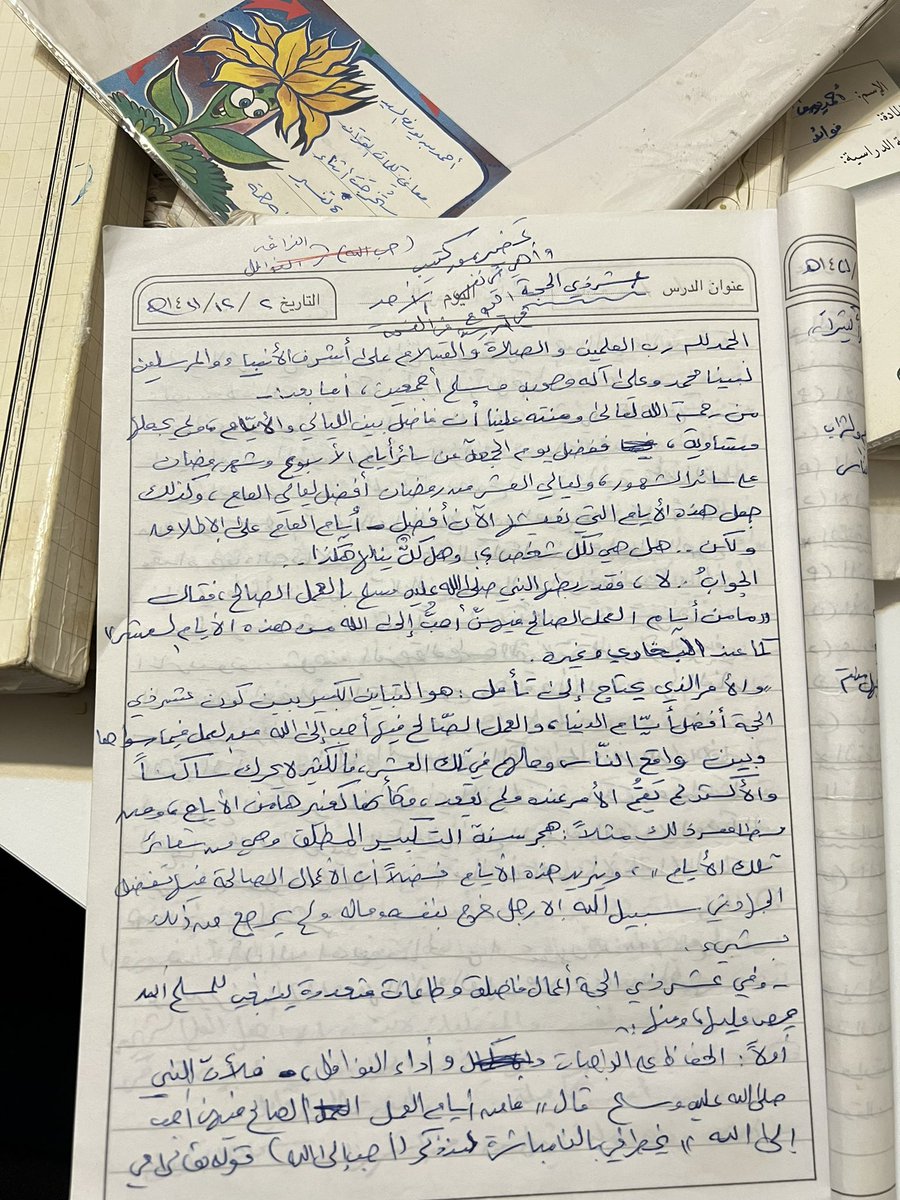 الإسم: أحمد يوسف
المادة: فوائد
الدراسية:
أحمد بن يوسف السيد
معاني كلمات القرآن
تحضير
النوافل
(حب الله)
عنوان الدرس
عشر ذي الحجة
اليوم الأحد
التاريخ ٢ / ١٢ / ١٤٣١هـ
الحمد لله رب العلمين والصلاة والسلام على أشرف الأنبياء والمرسلين
نبينا محمد وعلى آله وصحبه وسلم أجمعين، أما بعد:-
من رحمة الله تعالى ومنته علينا أن فاضل بين الليالي والأيام، ولم يجعلها
متساوية، ففضل يوم الجمعة عن سائر أيام الأسبوع وشهر رمضان
على سائر الشهور، وليالي العشر من رمضان أفضل ليالي العام، وكذلك
جعل هذه الأيام التي نعيشها الآن أفضل أيام العام على الإطلاق
ولكن.. هل هي لكل شخص؟! وهل كلٌّ ينالها هكذا..
الجوابُ: لا، فقد ربطها النبي صلى الله عليه وسلم بالعمل الصالح، فقال
"ما من أيام العمل الصالح فيهنّ أحبُّ إلى الله من هذه الأيام العشر"
كما عند البخاري وغيره.
والأمر الذي يحتاج إلى تأمل: هو التباين الكبير بين كون عشر ذي
الحجة أفضل أيّام الدنيا، والعمل الصّالح فيها أحب إلى الله من العمل فيما سواها
وبين واقع النّاس وحالهم في تلك العشر، فالكثير لا يحرك ساكناً
والأكثر لم يَقُم الأمر عنده ولم يقعد، وكأنها كغيرها من الأيام، ومن
ذلك مثلاً: هجر سنة التكبير المطلق وهي من شعائر
تلك الأيام، ويزيد هذه الأيام فضلاً أن الأعمال الصالحة فيها تفضل
الجهاد في سبيل الله إلا رجل خرج بنفسه وماله ولم يرجع من ذلك
بشيء.
- وفي عشر ذي الحجة أعمال فاضلة وطاعات متعددة ينبغي للمسلم أن
يحرص عليها، ومنها:
أولاً: الحفاظ على الواجبات وأداء النوافل، فلأن النبي
صلى الله عليه وسلم قال "ما من أيام العمل الصالح فيهن أحب
إلى الله" يخطر في بالنا مباشرة عند ذكر (أحب إلى الله) قوله تعالى في